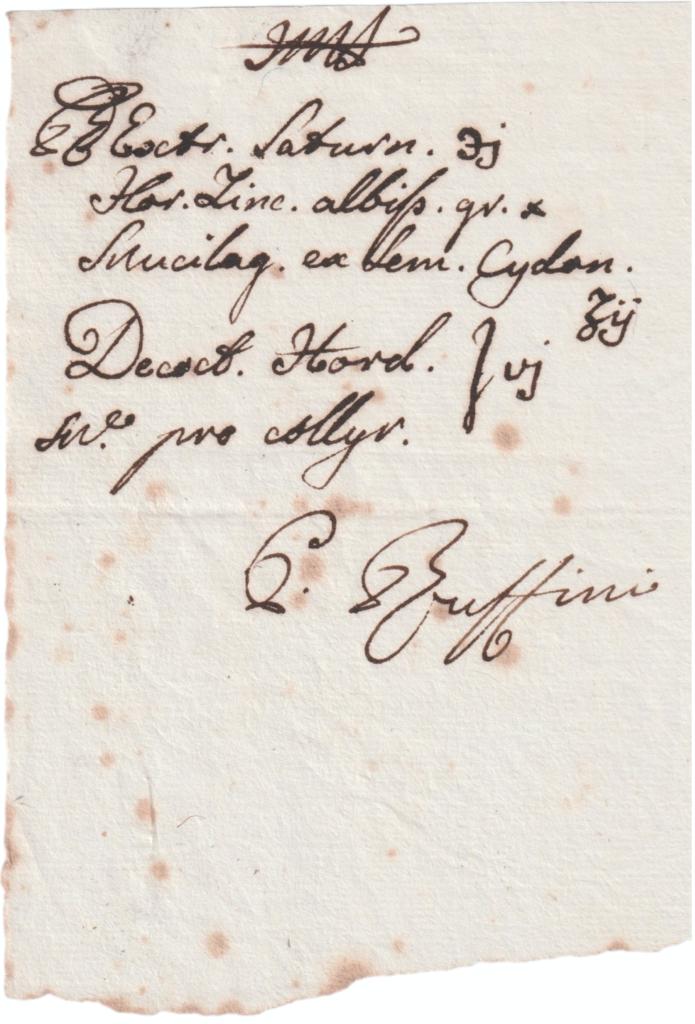 ℞ Extr. Saturn. ℈j
Flor. Zinc. albiss. gr. x
Mucilag. ex sem. Cydon.
ʒij
Decoct. Hord. } vj
M.e pro collyr.
P. Ruffini